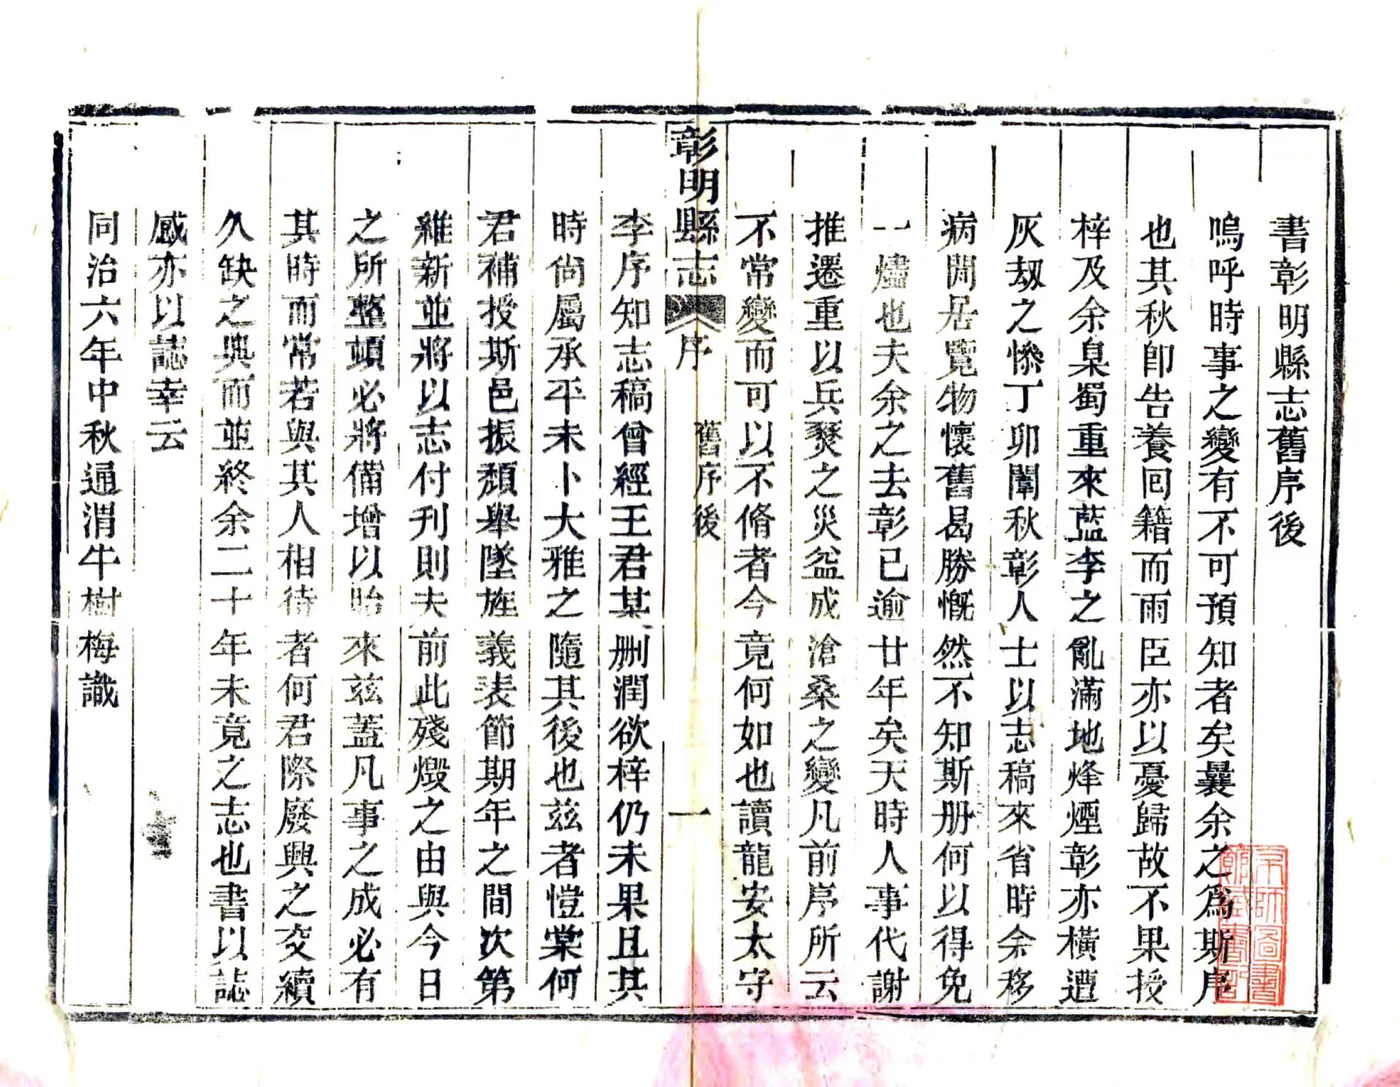 書彰明縣志舊序後
嗚呼時事之變有不可預知者矣曩余之爲斯序
也其秋卽告養回籍而雨臣亦以憂歸故不果授
梓及余臬蜀重來藍李之亂滿地烽煙彰亦橫遭
灰刼之慘丁卯闈秋彰人士以志稿來省時余移
病閒居覽物懷舊曷勝慨然不知斯册何以得免
一燼也夫余之去彰已逾廿年矣天時人事代謝
推遷重以兵燹之災益成滄桑之變凡前序所云
不常變而可以不脩者今竟何如也讀龍安太守
彰明縣志
序
舊序後
一
李序知志稿曾經王君某删潤欲梓仍未果且其
時尙屬承平未卜大雅之隨其後也兹者愷棠何
君補授斯邑振頽舉墜旌義表節期年之間次第
維新並將以志付刊則夫前此殘燬之由與今日
之所整頓必將備增以貽來兹蓋凡事之成必有
其時而常若與其人相待者何君際廢興之交續
久缺之典而並終余二十年未竟之志也書以誌
感亦以誌幸云
同治六年中秋通渭牛樹梅識
京師圖書
館藏書印